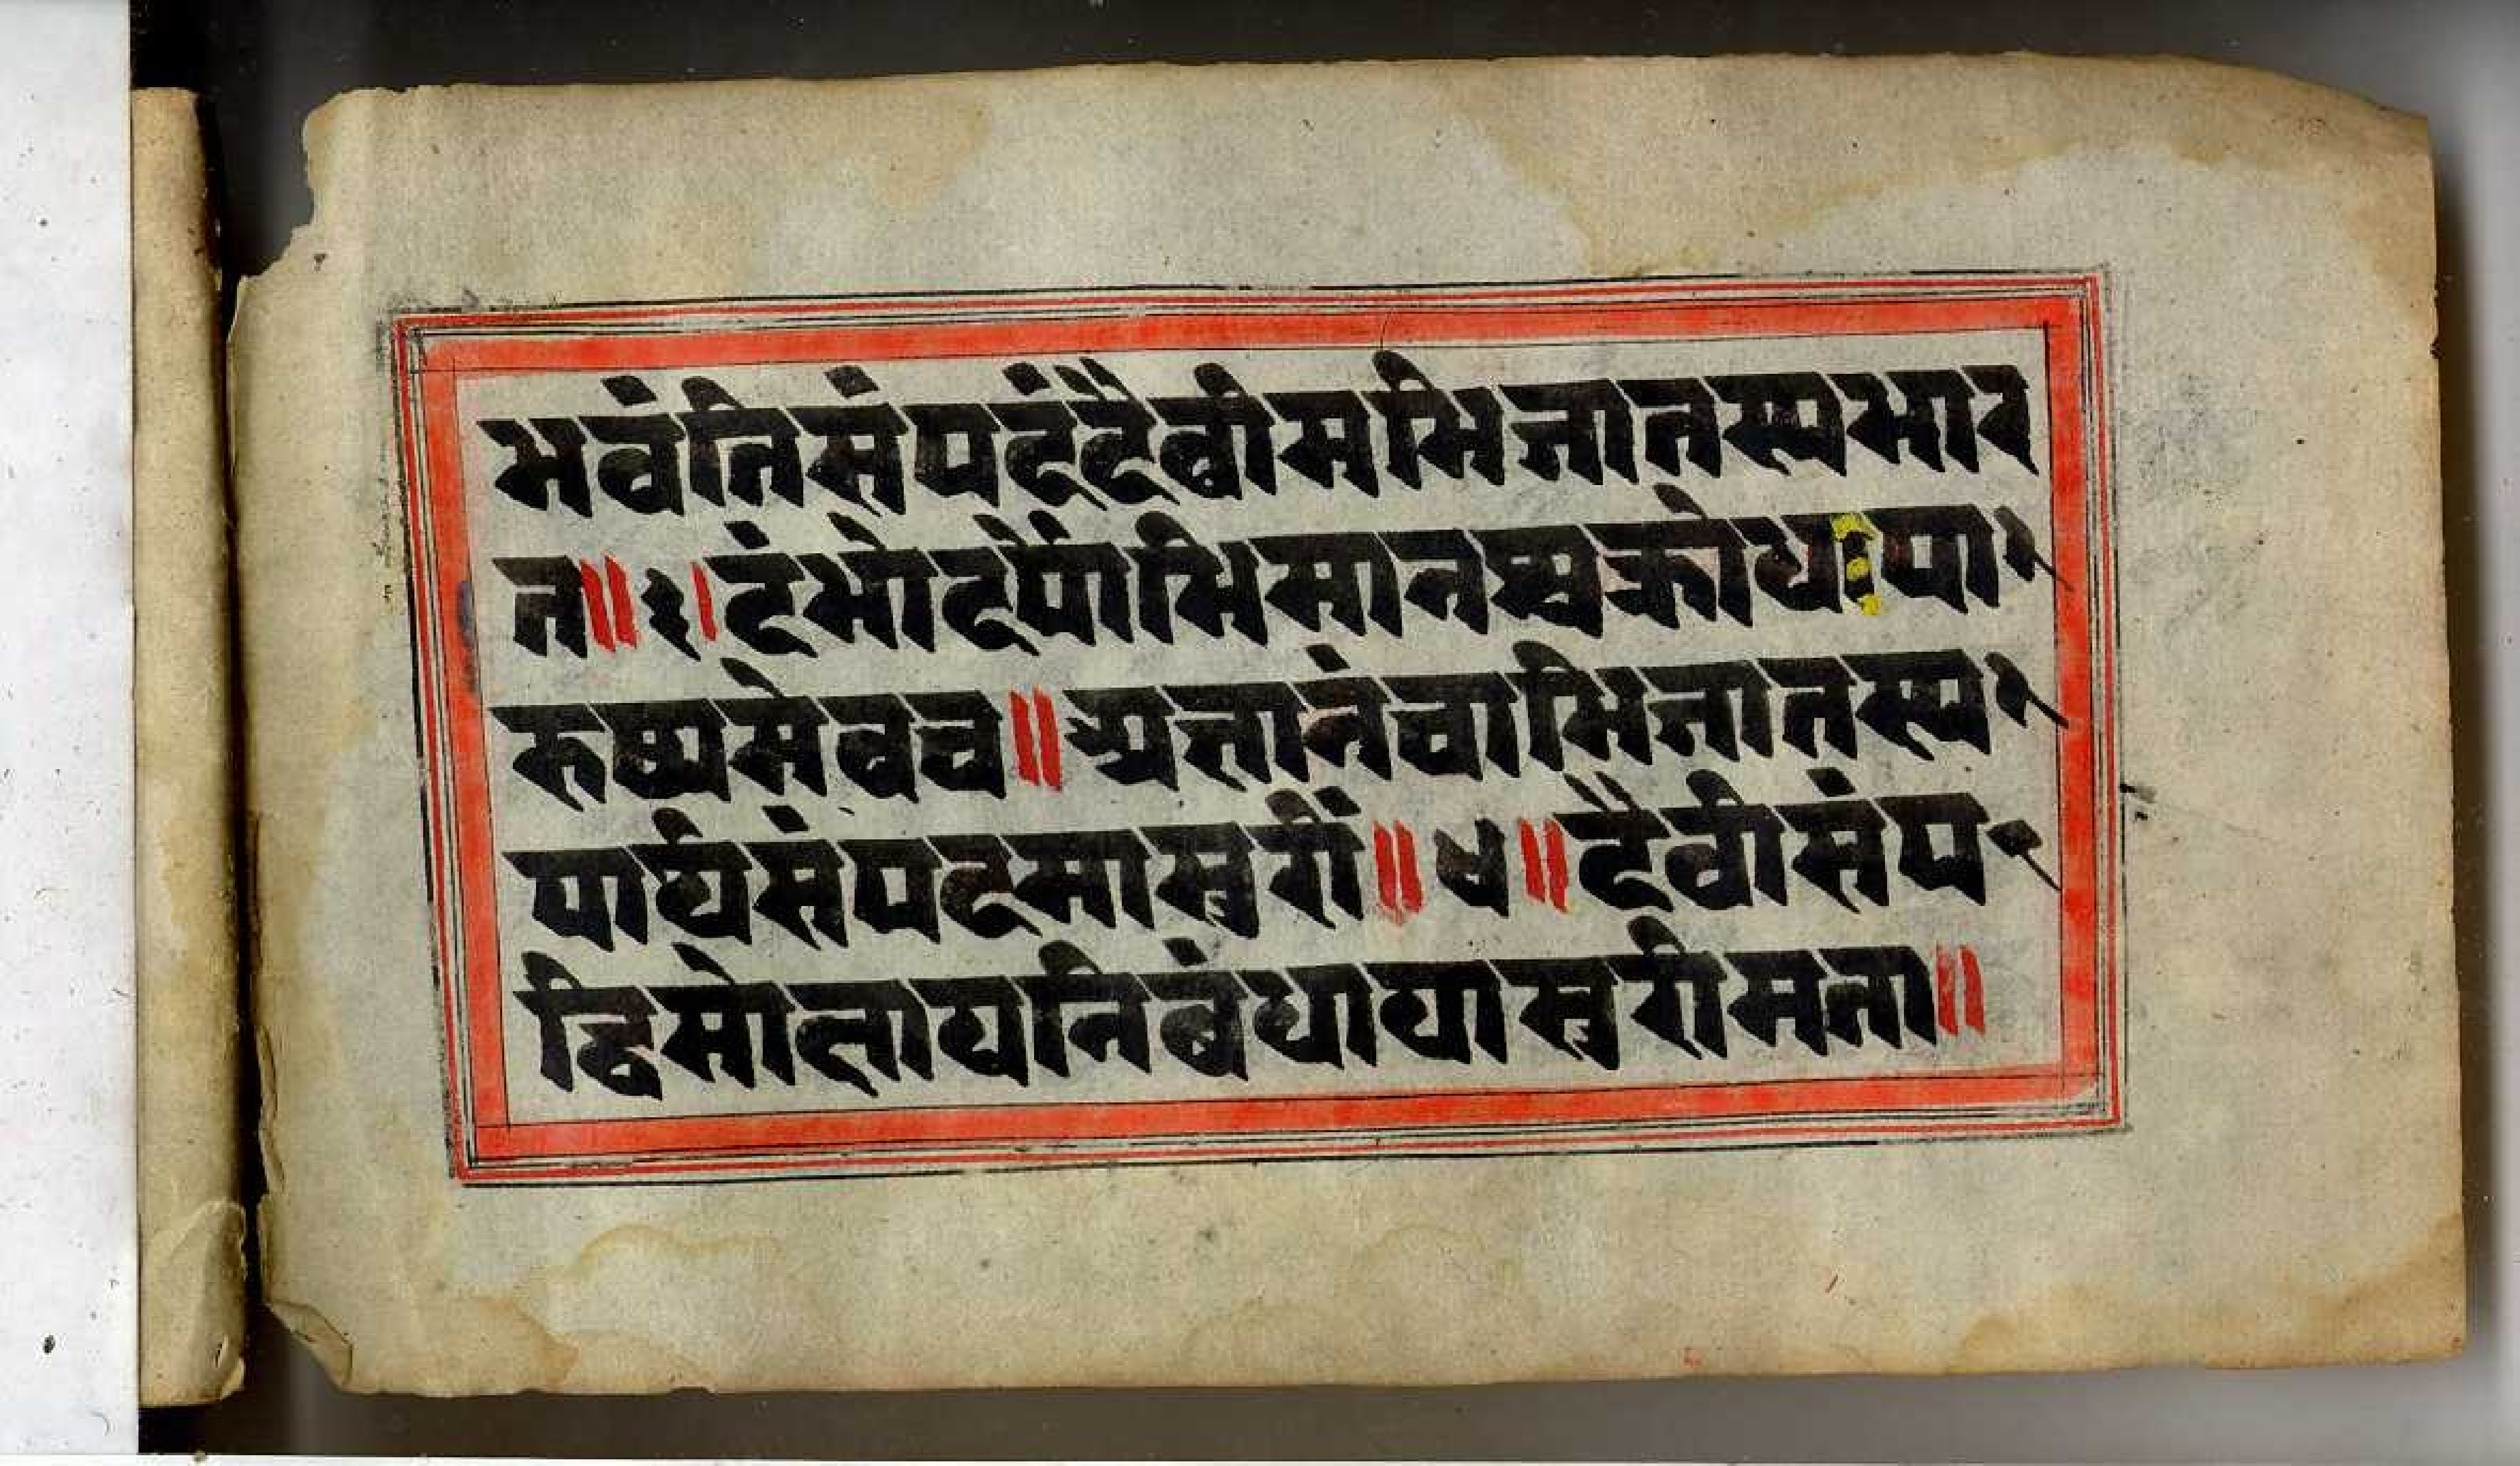 भवंतिसंपदंदैवीमभिजातस्यभार
त॥३।दंभोदर्पोभिमानश्चक्रोधःपा
रुष्यमेवच॥अज्ञानंचाभिजातस्य
पार्थसंपदमासुरीं॥४॥दैवीसंप
द्विमोक्षायनिबंधायासुरीमता॥